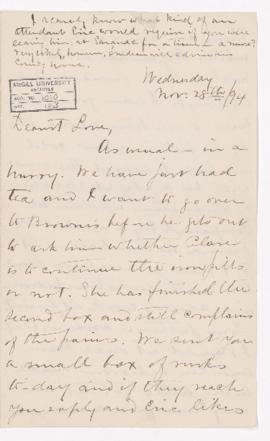 I scarcely know what kind of an
attendant Eric would require if you were
leaving him, at Saranac for a time
Very likely, however, will advise
coming home.
McGILL UNIVERSITY
ARCHIVES
ACC. NO. 1070
REF.
Wednesday
Nov. 28th/94
Dearest Love,
As usual – in a
hurry. We have just had
tea and I want to go over
to Browns before he gets out
to ask him whether Clare
is to continue the iron pills
or not. She has finished the
second box and still complains
of the pains. We sent you
a small box of
to-day and if they reach
you safely and Eric likes